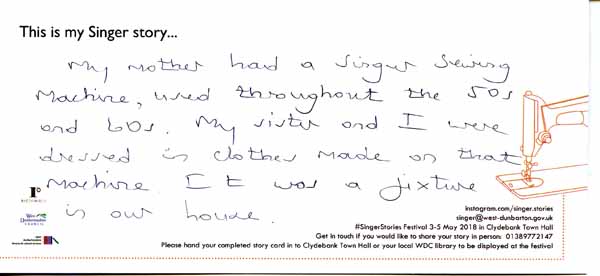 This is my Singer story...
My mother had a Singer Sewing
Machine, used throughout the 50s
and 60s. My sister and I were
dressed in clothes made on that
machine. It was a fixture
in our house.
instagram.com/singer.stories
singer@west-dunbarton.gov.uk
#SingerStories Festival 3-5 May 2018 in Clydebank Town Hall
Get in touch if you would like to share your story in person: 01389772147
Please hand your completed story card in to Clydebank Town Hall or your local WDC library to be displayed at the festival